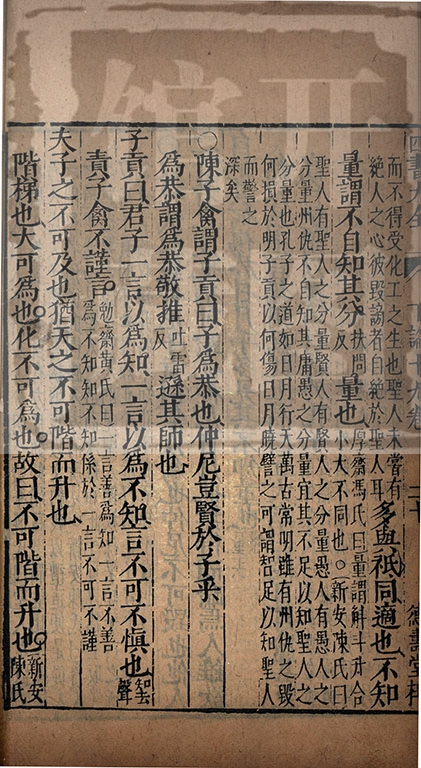 而不得受化工之生也聖人未嘗有
絶人之心彼毀謗者自絶於聖人耳
多與祇同適也不知
量謂不自知其分
扶問
反
量也
厚齋馮氏曰量謂斛斗升合
小大不同也○新安陳氏曰
聖人有聖人之分量賢人有賢人之分量愚人有愚人之
分量州仇不自知其庸愚之分量宜其不足以知聖人之
分量也孔子之道如日月行天萬古常明雖有州仇之毀
何損於明子貢以何傷日月曉譬之可謂智足以知聖人
而警之
深矣
○陳子禽謂子貢曰子爲恭也仲尼豈賢於子乎
爲恭謂爲恭敬推
吐雷
反
遜其師也
子貢曰君子一言以爲知一言以爲不知言不可不慎也
知去
聲
責子禽不謹言
勉齋黃氏曰一言善爲知一言不善
爲不知知不知係於一言不可不謹
夫子之不可及也猶天之不可階而升也
階梯也大可爲也化不可爲也故曰不可階而升也
新安
陳氏
四書大全
下論十九卷
二十
德壽堂梓